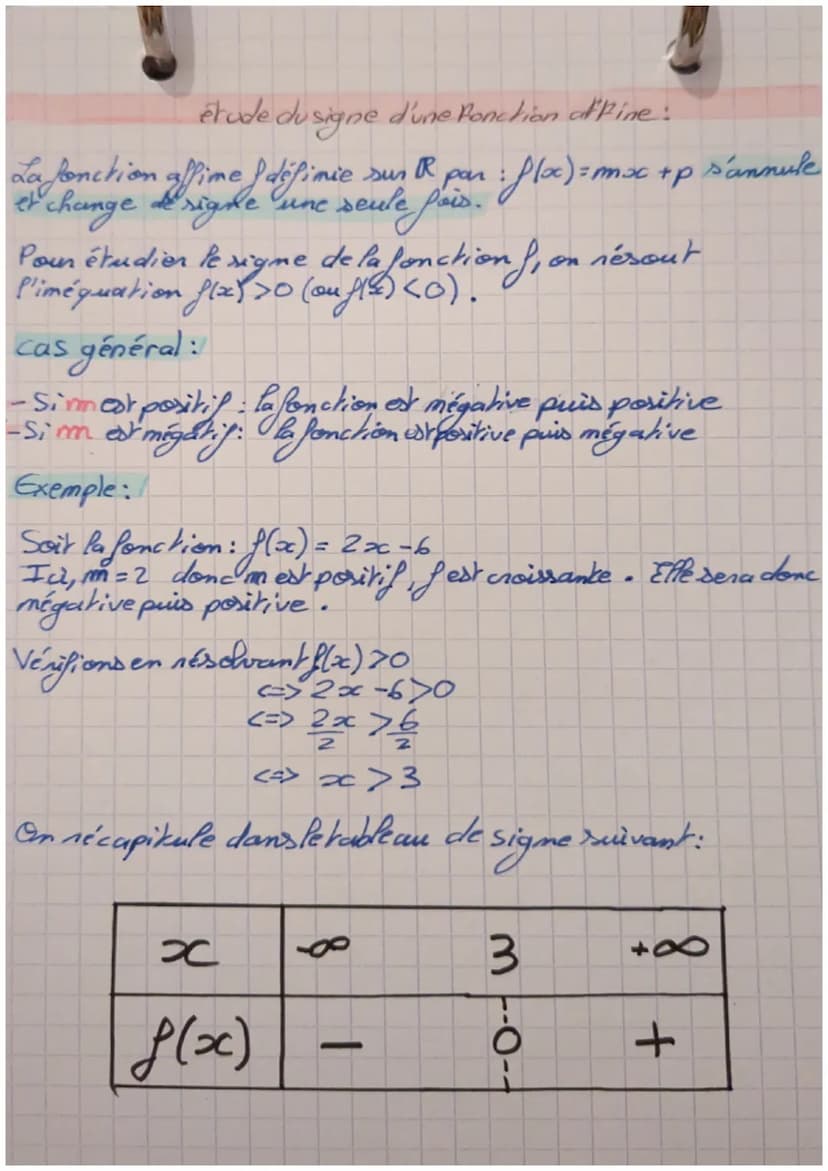 étude du signe d'une fonction affine :
La fonction affine f définie sur ℝ par : f(x) = mx + p s'annule
et change de signe une seule fois.
Pour étudier le signe de la fonction f, on résout
l'inéquation f(x) > 0 (ou f(x) < 0).
cas général :
- Si m est positif : la fonction est négative puis positive
- Si m est négatif : la fonction est positive puis négative
Exemple :
Soit la fonction : f(x) = 2x - 6
Ici, m = 2 donc m est positif, f est croissante. Elle sera donc
négative puis positive.
Vérifions en résolvant f(x) > 0
<=> 2x - 6 > 0
<=> 2x/2 > 6/2
<=> x > 3
On récapitule dans le tableau de signe suivant :
x -∞ 3 +∞
f(x) - 0 +